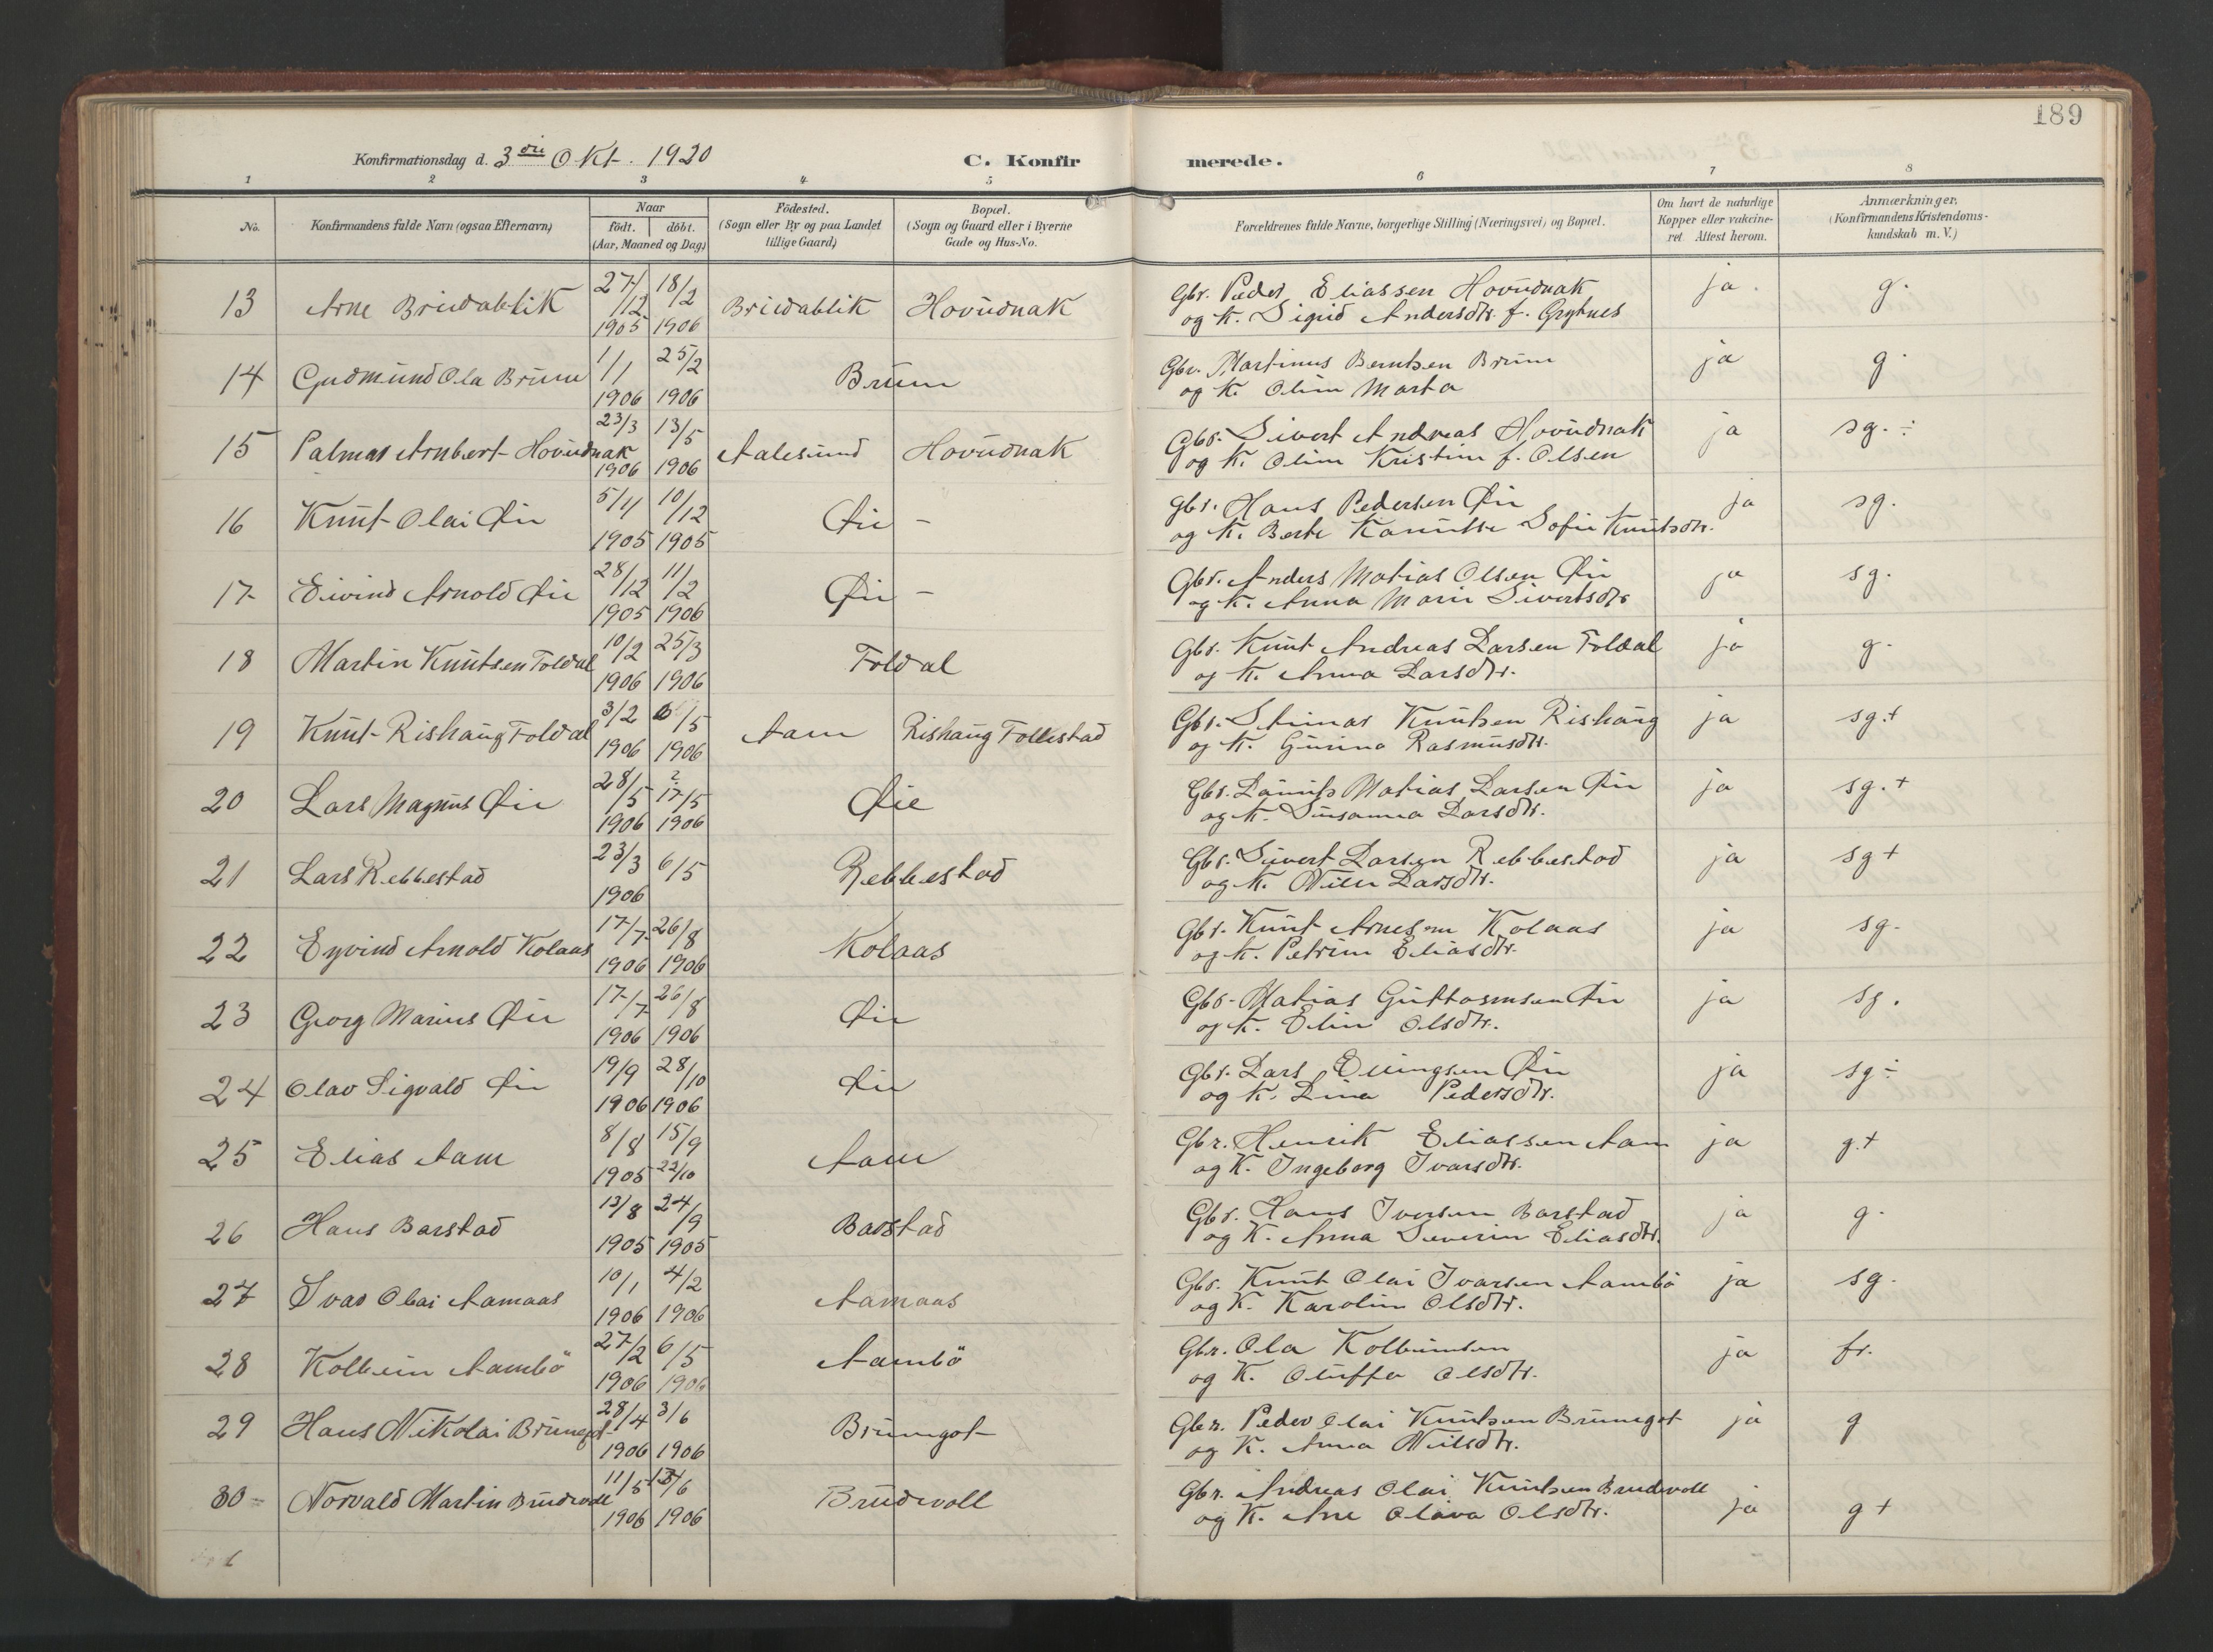 189
Konfirmationsdag d. 3die Okt. 1920
C. Konfirmerede.
1 2 3 4 5 6 7 8
No. Konfirmandens fulde Navn (ogsaa Efternavn) Naar födt. döbt. (Aar, Maaned og Dag) Födested. (Sogn eller By og paa Landet tillige Gaard) Bopæl. (Sogn og Gaard eller i Byerne Gade og Hus-No. Forældrenes fulde Navne, borgerlige Stilling (Næringsvei) og Bopæl. Om havt de naturlige Kopper eller vakcineret Attest herom. Anmærkninger. (Konfirmandens Kristendomskundskab m. V.)
13 Arne Breidablik 27/12 1905 18/2 1906 Breidablik Hovudnak Gbr. Peder Eliassen Hovudnak ja. g.
og K. Sigrid Andersdtr. f. Grytnes
14 Gudmund Ola Brune 1/1 1906 25/2 1906 Brune Gbr. Martinus Berntsen Brune ja g.
og K. Oline Marta
15 Palmar Arnbert Hovudnak 23/3 1906 13/5 1906 Aalesund Hovudnak Gbr. Sivert Andreas Hovudnak ja sg. ÷
og K. Oline Kristine f. Olsen
16 Knut Olai Øie 5/11 1905 10/12 1905 Øie - gbr. Hans Pedersen Øie ja sg.
og K. Berte Sofie Knutsdtr.
17 Eivind Arnold Øie 28/12 1905 11/2 1906 Øie - Gbr. Anders Matias Olsen Øie ja sg.
og K. Anna Marie Sivertsdtr
18 Martin Knutsen Foldal 10/2 1906 25/3 1906 Foldal Gbr. Knut Andreas Larsen Foldal ja g.
og K. Anna Larsdtr.
19 Knut Rishaug Foldal 3/2 1906 6/5 1906 Aam Rishaug Follestad Gbr. Knutsen Rishaug ja sg.+
og K. Gurina Rasmusdtr.
20 Lars Magnus Øie 28/5 1906 ? 17/5 1906 Øie Gbr. Matias Larsen Øie ja sg.+
og K. Susanna Larsdtr.
21 Lars Rebbestad 23/3 1906 6/5 Rebbestad Gbr. Sivert Larsen Rebbestad ja sg+
og K. Larsdtr.
22 Eyvind Arnold Kolaas 17/7 1906 26/8 1906 Kolaas Gbr. Knut Arnesen Kolaas ja sg.
og K. Petrine Eliasdtr.
23 Georg Marius Øie 17/7 1906 26/8 1906 Øie Gbr. Matias Guttormsen Øie ja sg.
og K. Eline Olsdtr.
24 Olav Sigvald Øie 19/9 1906 28/10 1906 Øie Gbr. Lars Ellingsen Øie ja sg ÷
og K. Lina Pedersdtr.
25 Elias Aam 8/8 1905 15/9 22/10 Aam Gbr. Henrik Eliassen Aam ja g.+
og K. Ingeborg Ivarsdtr.
26 Hans Barstad 13/8 1905 24/9 1905 Barstad Gbr. Hans Iversen Barstad ja g.
og K. Anna Severine Eliasdtr.
27 Ivar Olai Aamaas 10/1 1906 4/2 1906 Aamaas Gbr. Knut Olai Ivarsen Aambö ja sg.
og K. Karoline Olsdtr.
28 Kolbein Aambö 27/2 1906 6/5 1906 Aambö Gbr. Ola Kolbeinsen ja fr.
og K. Oluffa Olsdtr.
29 Hans Nikolai Brunegot 28/4 1906 3/6 1906 Brunegot Gbr. Peder Olai Knutsen Brunegot ja g
og K. Anna Nilsdtr.
30 Norvald Martin Brudevoll 11/5 1906 13/6 1906 Brudevoll Gbr. Andreas Olai Knutsen Brudevoll ja g+
og K. Ane Olava Olsdtr.